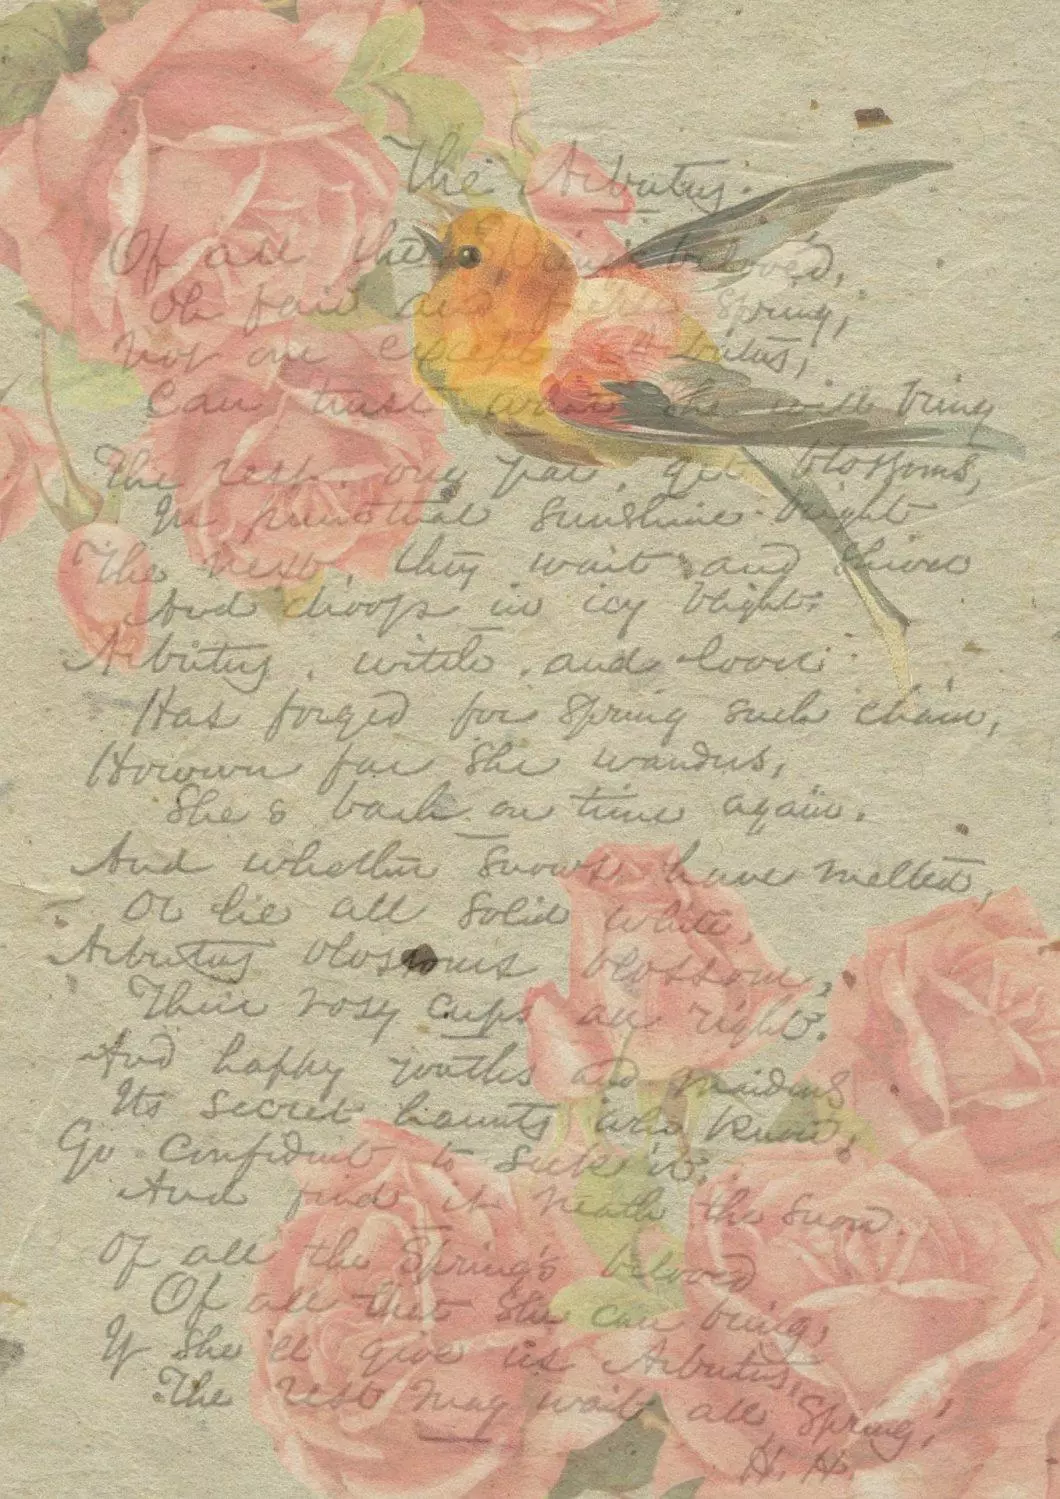 The Arbutus.
Of all the Spring's beloved,
Oh fair and Spring,
Not one except Arbutus,
Can trust what she will bring
The rest, one year, get blossoms,
In punctual sunshine bright
The next, they wait and shiver
And droop in icy blight.
Arbutus, with and
Has forged for Spring such chain,
However far she wanders,
She's back on time again.
And whether snows have melted,
Or lie all solid white,
Arbutus blossoms blossom,
Their rosy cups all right.
And happy youths and maidens
Its secret haunts who know,
Go confident to seek it.
And find it neath the snow.
Of all the Spring's beloved
Of all that she can bring,
If she'll give us Arbutus,
The rest may wait all Spring!
H. H.